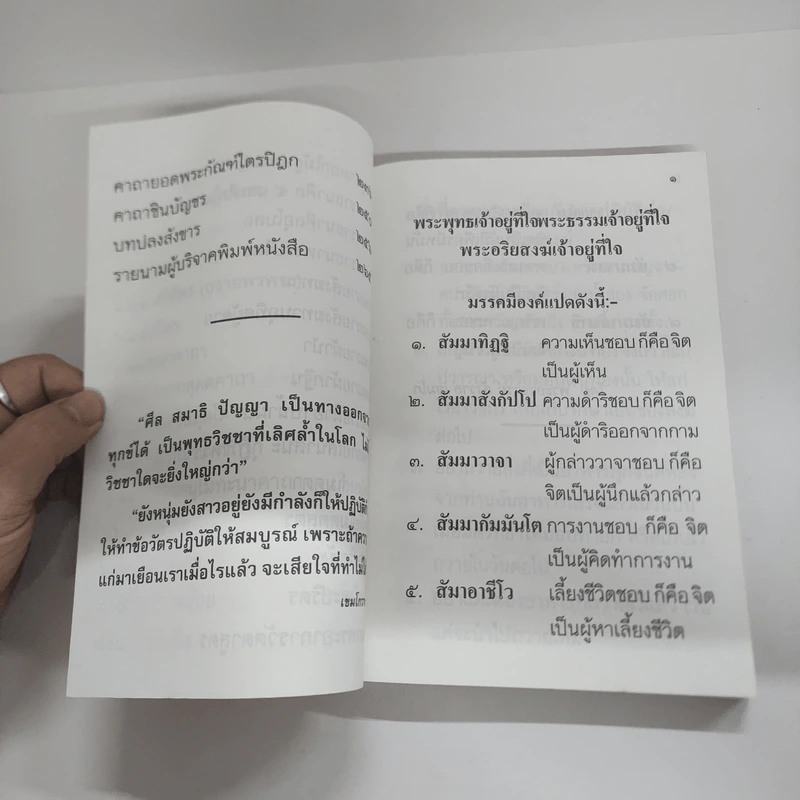 คาถายอดพระกัณฑ์ไตรปิฎก
คาถาชินบัญชร
บทปลงสังขาร
รายนามผู้บริจาคพิมพ์หนังสือ
"ศีล สมาธิ ปัญญา เป็นทางออกจา
ทุกข์ได้ เป็นพุทธวิชชาที่เลิศล้ำในโลก ไม่
วิชชาใดจะยิ่งใหญ่กว่า"
"ยังหนุ่มยังสาวอยู่ยังมีกำลังก็ให้ปฏิบัติ
ให้ทำข้อวัตรปฏิบัติให้สมบูรณ์ เพราะถ้าควา
แก่มาเยือนเราเมื่อไรแล้ว จะเสียใจที่ทำไม่
๑
พระพุทธเจ้าอยู่ที่ใจพระธรรมเจ้าอยู่ที่ใจ
พระอริยสงฆ์เจ้าอยู่ที่ใจ
มรรคมีองค์แปดดังนี้:-
๑. สัมมาทิฏฐิ ความเห็นชอบ ก็คือ จิต
เป็นผู้เห็น
๒. สัมมาสังกัปโป ความดำริชอบ ก็คือ จิต
เป็นผู้ดำริออกจากกาม
๓. สัมมาวาจา ผู้กล่าววาจาชอบ ก็คือ
จิตเป็นผู้นึกแล้วกล่าว
๔. สัมมากัมมันโต การงานชอบ ก็คือ จิต
เป็นผู้คิดทำการงาน
๕. สัมาอาชีโว เลี้ยงชีวิตชอบ ก็คือ จิต
เป็นผู้หาเลี้ยงชีวิต